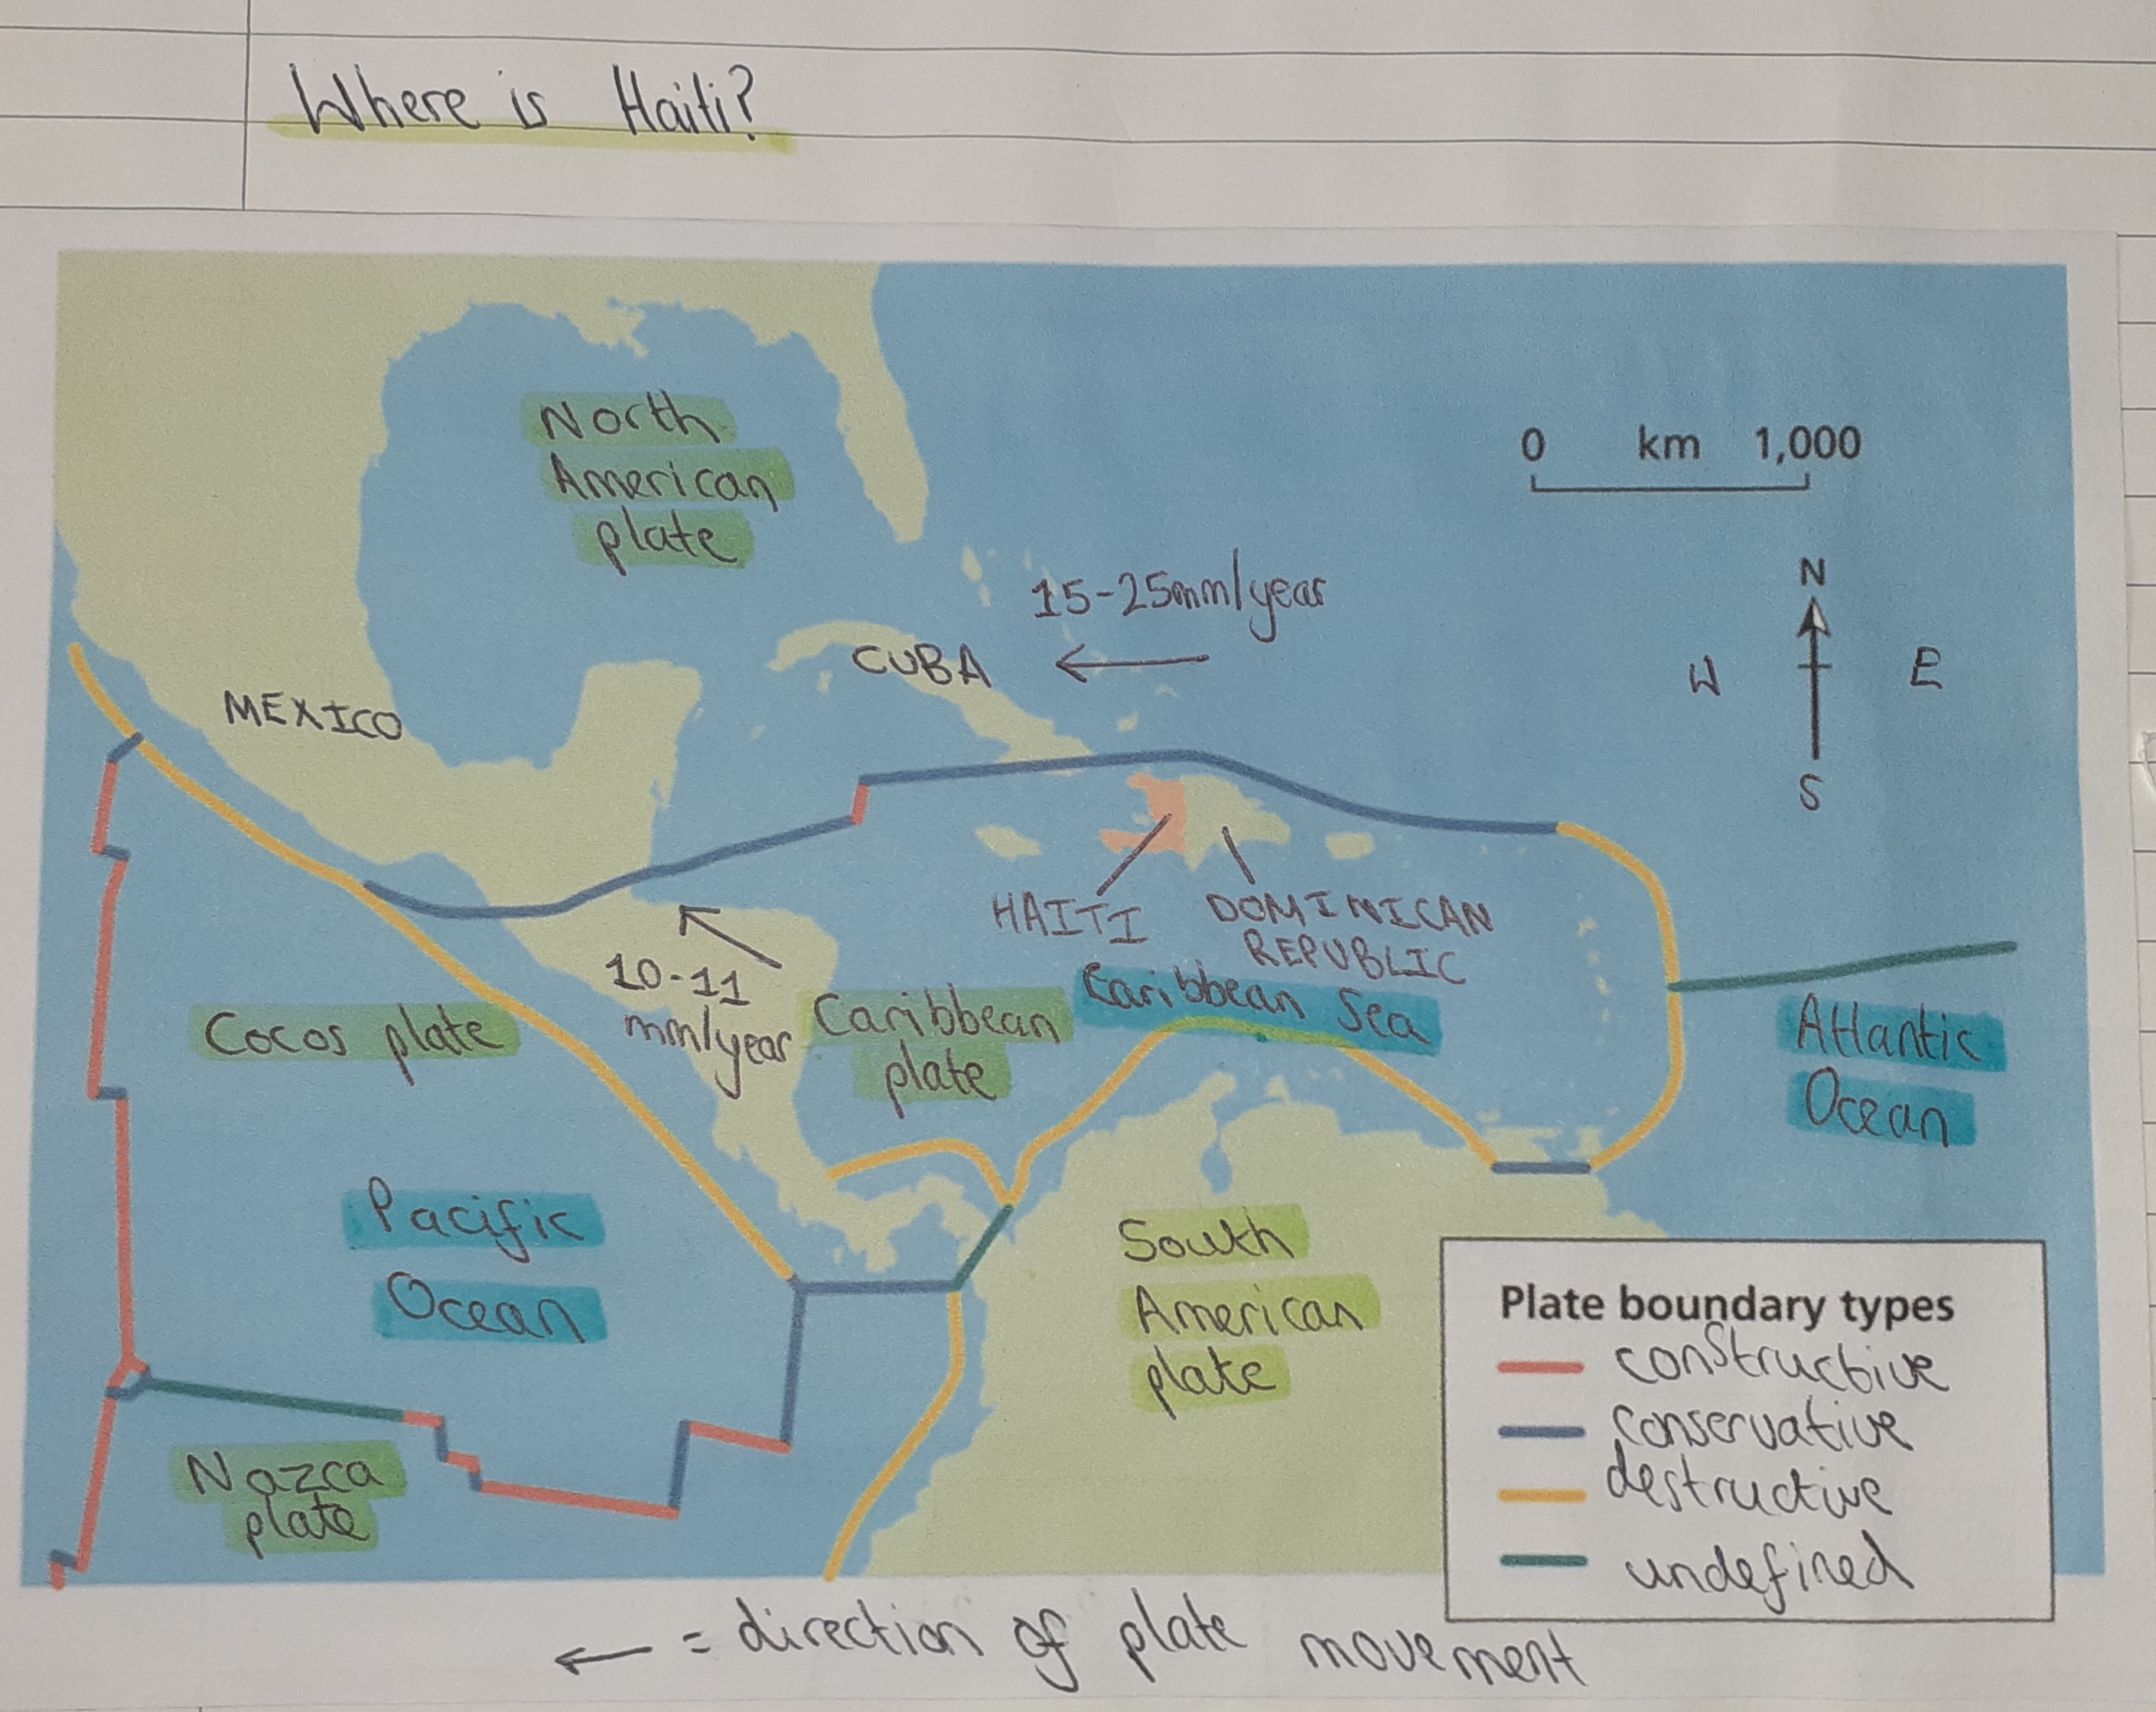 Where is Haiti?
North
American
plate
0 km 1,000
15-25mm/year
N
CUBA
W E
MEXICO
S
HAITI
DOMINICAN
REPUBLIC
10-11
mm/year
Cocos plate
Caribbean
plate
Caribbean Sea
Atlantic
Ocean
Pacific
Ocean
South
American
plate
Nazca
plate
Plate boundary types
constructive
conservative
destructive
undefined
← = direction of plate movement